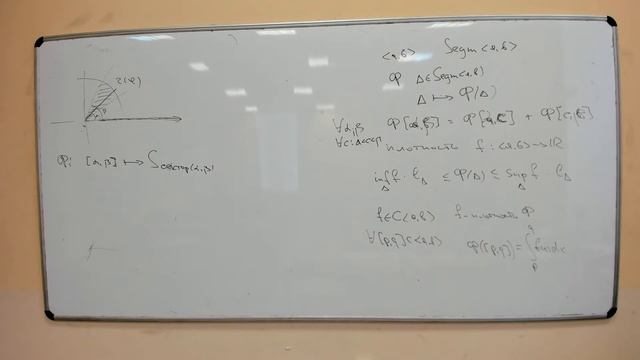 r(φ)
Φ: [α,β] ↦ S сектор(α,β)
<a,b> Segm<a,b>
Φ Δ∈Segm<a,b>
Δ ↦ Φ(Δ)
∀α,β Φ[α,β] = Φ[α,c] + Φ[c,β]
∀c: α<c<β
плотность f: <a,b> → ℝ
inf_Δ f · ℓ_Δ ≤ Φ(Δ) ≤ sup_Δ f · ℓ_Δ
f∈C<a,b> f - плотность Φ
∀[p,q]⊂<a,b> Φ([p,q]) = ∫_p^q f(x)dx